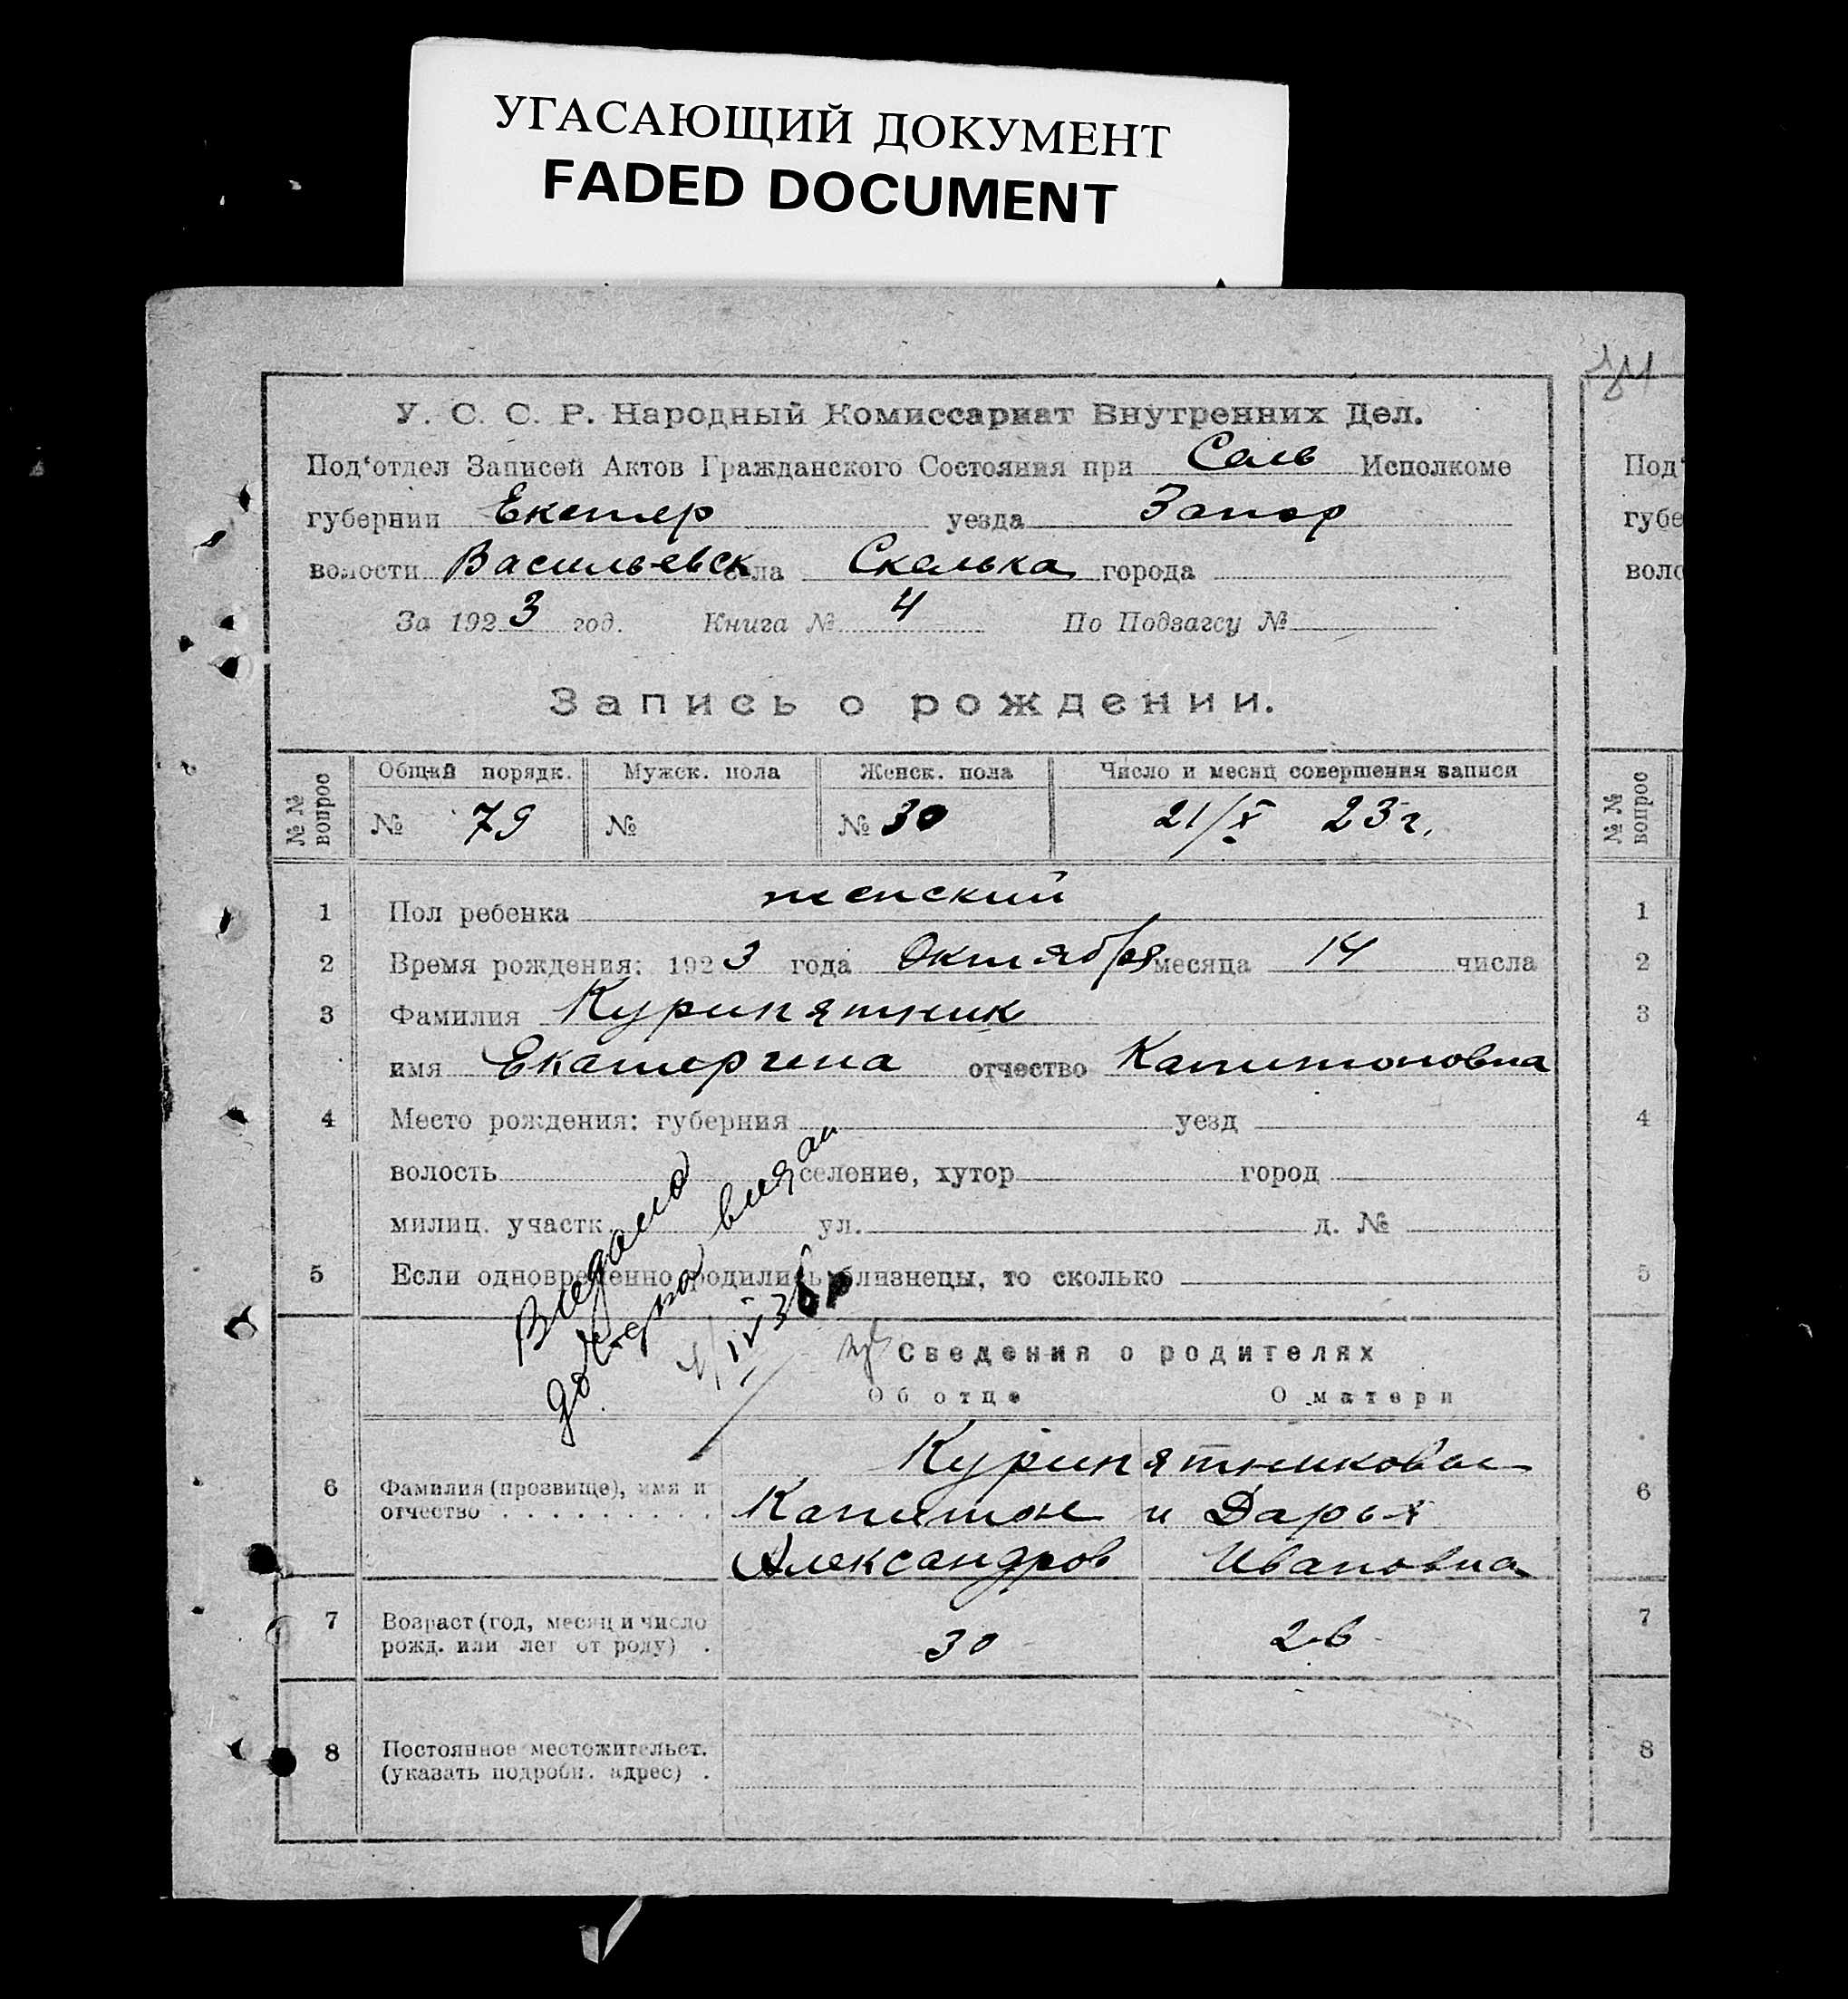 УГАСАЮЩИЙ ДОКУМЕНТ
FADED DOCUMENT
У. С. С. Р. Народный Комиссариат Внутренних Дел.
Под‘отдел Записей Актов Гражданского Состояния при Сель Исполкоме
губернии Екатер уезда Запор
волости Васильевск села Скелька города
За 1923 год. Книга № 4 По Подзагсу №
Запись о рождении.
№ № вопрос
Общий порядк. Мужск. пола Женск. пола Число и месяц совершения записи
№ 79 № № 30 21/X 23 г.
1 Пол ребенка женский
2 Время рождения: 1923 года Октября месяца 14 числа
3 Фамилия Курипятник
имя Екатерина отчество Капитоновна
4 Место рождения: губерния уезд
волость селение, хутор город
милиц. участк. ул. д. №
5 Если одновременно родились близнецы, то сколько
Сведения о родителях
Об отце О матери
6 Фамилия (прозвище), имя и отчество Курипятниковы
Капитон и Дарья
Александров Ивановна
7 Возраст (год, месяц и число рожд. или лет от роду) 30 26
8 Постоянное местожительст. (указать подробн. адрес)
Под‘
губе
воло
№ № вопрос
1
2
3
4
5
6
7
8